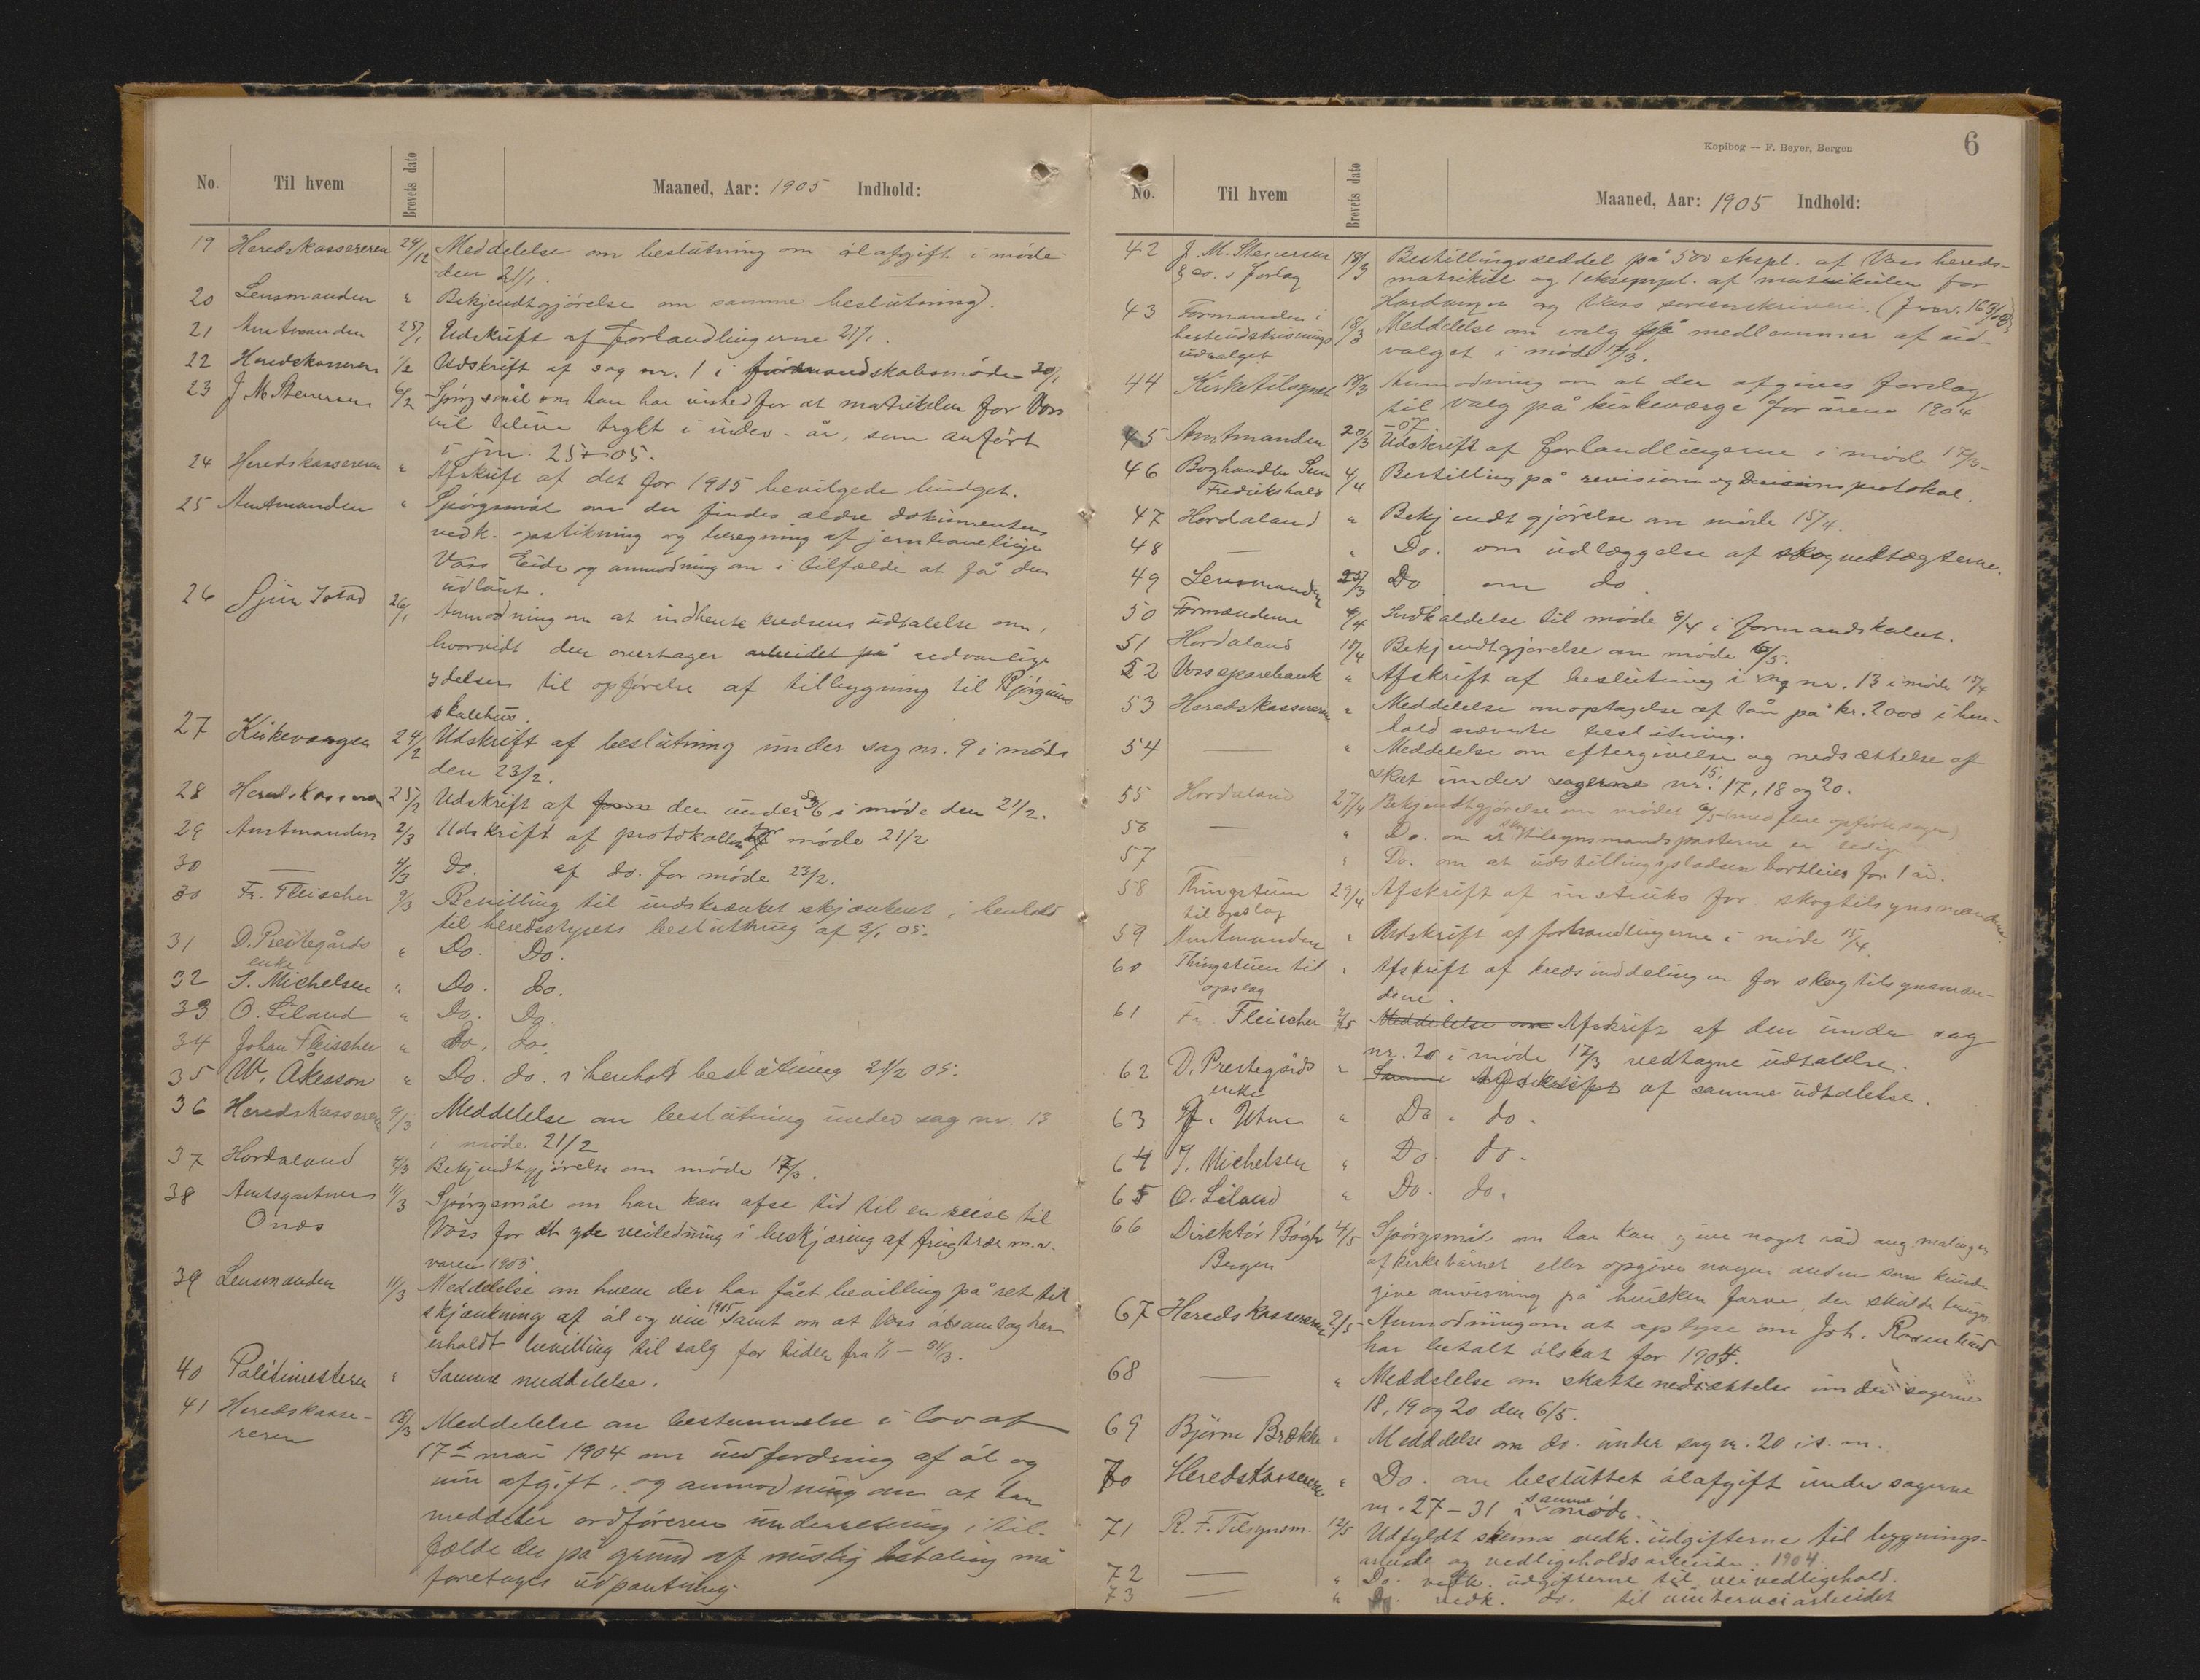 No. Til hvem Brevets dato Maaned, Aar: 1905 Indhold:
19 Heredskassereren 24/12 Meddelelse om beslutning om ølafgift i møde
den 21/1.
20 Lensmanden " Bekjendtgjørelse om samme beslutning.
21 Amtmanden 25/1 Udskrift af forhandlingerne 21/1.
22 Heredskasseren 1/2 Udskrift af sag nr. 1 i formandskabsmøde 30/1
23 J. M. Stenersen 6/2 Spørgsmål om han har vished for at matrikelen for Voss
vil blive trykt i indev. år, som anført
i jnr. 25 - 05.
24 Heredskassereren " Afskrift af det for 1905 bevilgede budget.
25 Amtmanden " Spørgsmål om der findes ældre dokumenter
vedk. opstikning og beregning af jernbanelinje
Voss Eide og anmodning om i tilfælde at få dem
udlånt.
26 Sjur Istad 26/1 Anmodning om at indhente kredsens udtalelse om,
hvorvidt den overtager arbeidet på sedvanlige
ydelser til opførelse af tilbygning til Bjørgums
skolehus.
27 Kirkevergen 24/2 Udskrift af beslutning under sag nr. 9 i møde
den 23/2.
28 Heredskasseren 25/2 Udskrift af den under sag 6 i møde den 21/2.
29 Amtmanden 2/3 Udskrift af protokollen for møde 21/2
30 — 4/3 Do. af do. for møde 23/2.
30 Fr. Fleischer 9/3 Bevilling til indskrænket skjænkeret i henhold
til heredsstyrets beslutning af 3/1 05.
31 D. Prestegårds
enke " Do. Do.
32 I. Michelsen " Do. do.
33 O. Liland " Do. Do.
34 Johan Fleischer " do. do.
35 W. Åkesson " Do. do. i henhold beslutning 21/2 05.
36 Heredskasseren 9/3 Meddelelse om beslutning under sag nr. 13
i møde 21/2
37 Hordaland 4/3 Bekjendtgjørelse om møde 17/3.
38 Amtsgartner
Onæs 11/3 Spørgsmål om han kan afse tid til en reise til
Voss for at yde veiledning i beskjæring af frugttrær m. v.
våren 1905.
39 Lensmanden 11/3 Meddelelse om hvem der har fået bevilling på ret til
skjænkning af øl og vin 1905 samt om at Voss ølsamlag har
erholdt bevilling til salg for tiden fra 1/1 – 31/3.
40 Politimesteren " Samme meddelelse.
41 Heredskasse-
reren 18/3 Meddelelse om bestemmelse i lov af
17de mai 1904 om indfordring af øl og
vin afgift, og anmodning om at han
meddeler ordføreren underretning i til-
fælde der på grund af mislig betaling må
foretages udpantning.
Kopibog — F. Beyer, Bergen 6
No. Til hvem Brevets dato Maaned, Aar: 1905 Indhold:
42 J. M. Stenersen
& co.s forlag 18/3 Bestillingsseddel på 500 ekspl. af Voss hereds-
matrikul og 1 eksempl. af matrikulen for
Hardanger og Voss sorenskriveri.
43 Formanden i
18/3 Meddelelse om valg på medlemmer af ud-
udvalget valget i møde 17/3.
44 Kirketilsynet 18/3 Anmodning om at der afgives forslag
til valg på kirkeværge for årene 1904
-07.
45 Amtmanden 20/3 Udskrift af forhandlingerne i møde 17/3
46 Boghandler
Fredrikshald 4/4 Bestilling på revisions og Decisionsprotokol.
47 Hordaland " Bekjendtgjørelse om møde 15/4.
48 — " Do. om udlæggelse af skogvedtægterne.
49 Lensmanden 25/3 Do om do.
50 Formændene 4/4 Indkaldelse til møde 8/4 i formandskabet.
51 Hordaland 18/4 Bekjendtgjørelse om møde 6/5.
52 Vossesparebank " Afskrift af beslutning i sag nr. 13 i møde 15/4
53 Heredskassereren " Meddelelse om optagelse af lån på kr. 2000 i hen-
hold nævnte beslutning.
54 — " Meddelelse om eftergivelse og nedsættelse af
skat under sagerne nr. 15, 17, 18 og 20.
55 Hordaland 27/4 Bekjendtgjørelse om mødet 6/5 (med flere opførte sager)
56 — " Do. om at skogtilsynsmandsposterne er ledig
57 — " Do. om at udstillingspladsen bortleies for 1 år.
58 Thingstuen
til opslag 29/4 Afskrift af instruks for skogtilsynsmændene.
59 Amtmanden " Udskrift af forhandlingerne i møde 15/4.
60 Thingstuen til
opslag " Afskrift af kredsinddelingen for skogtilsynsmæn-
dene.
61 Fr. Fleischer 2/5 Meddelelse om Afskrift af den under sag
nr. 20 i møde 17/3 vedtagne udtalelse.
62 D. Prestegårds
enke " Samme Afskrift af samme udtalelse.
63 Utne " Do. do.
64 I. Michelsen " Do. do.
65 O. Liland " Do. do.
66 Direktør Bøgh
Bergen 4/5 Spørgsmål om han kan give noget råd ang. malingen
af kirketårnet eller opgive nogen anden som kunde
give anvisning på hvilken farve, der skulde bruges.
67 Heredskassereren 2/5 Anmodning om at oplyse om Joh. Rosenlund
har betalt ølskat for 1904.
68 — " Meddelelse om skattenedsættelse under sagerne
18, 19 og 20 den 6/5.
69 Bjørne Brække " Meddelelse om do. under sag nr. 20 i s. m.
70 Heredskassereren " Do. om besluttet ølafgift under sagerne
nr. 27 – 31 i samme møde.
71 R. F. Tilsynsm. 12/5 Udfyldt skema vedk. udgifterne til bygnings-
arbeide og vedligeholdsarbeide 1904.
72 — " Do. vedk. udgifterne til veivedligehold.
73 — " Do. vedk. do. til vinterveiarbeidet